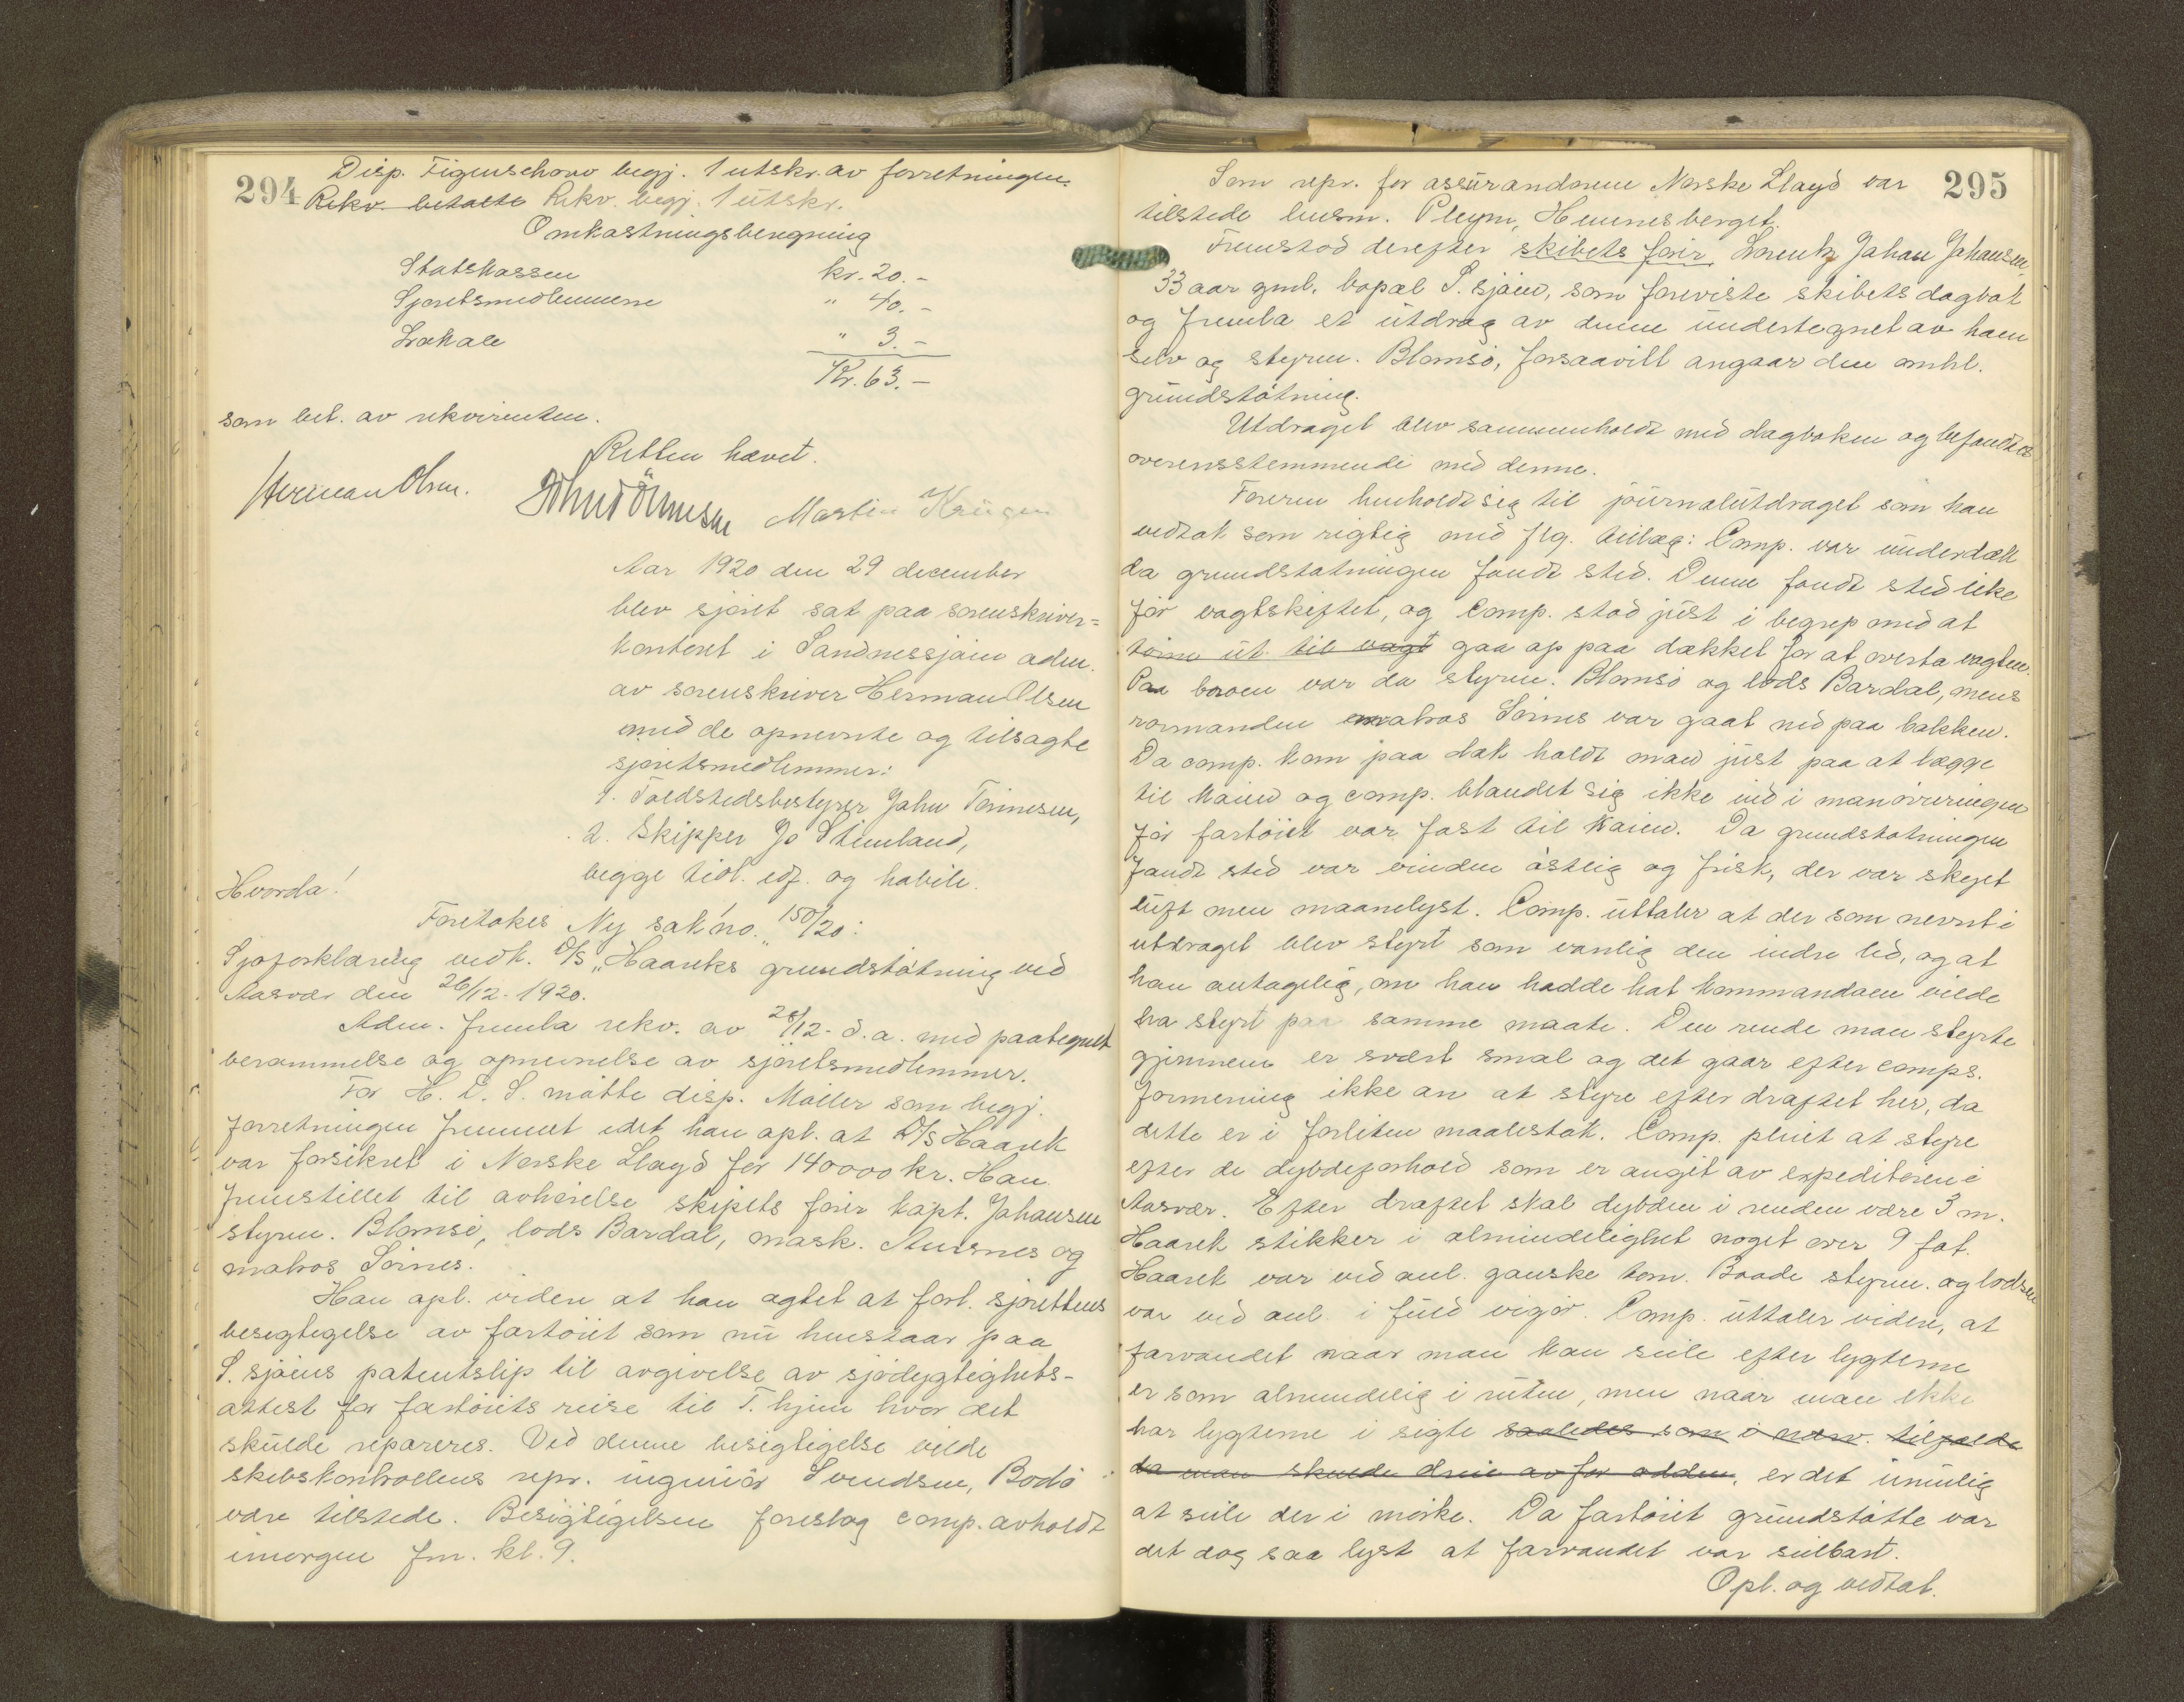 294
Disp. Figenschouw begj. 1 utskr. av forretningen.
Rekv. betalte Rekv. begj. 1 utskr.
Omkastningsberegning
Statskassen kr. 20.-
Sjøretsmedlemmene " 40.-
Lokale " 3.-
Kr. 63.-
som bet. av rekvirenten.
Retten hævet.
Herman Olsen. John Tönnesen Martin Krüger
Aar 1920 den 29 december
blev sjøret sat paa sorenskriver=
kontoret i Sandnessjøen adm.
av sorenskriver Herman Olsen
med de opnevnte og tilsagte
sjøretsmedlemmer:
1. Toldstedsbestyrer John Tönnesen,
2. Skipper Jo Stemland,
begge tidl. edf. og habile.
Hvorda!
Foretokes Ny sak no. 150/20:
Sjøforklaring vedk. D/S "Haareks grundstøtning ved
Aasvær den 26/12-1920.
Adm. fremla rekv. av 28/12- d.a. med paategnet
berammelse og opnevnelse av sjøretsmedlemmer.
For H. D. S. møtte disp. Møller som begj.
forretningen fremmet idet han opl. at D/S Haarek
var forsikret i Norske Lloyd for 140000 kr. Han
fremstillet til avhørelse skipets fører kapt. Johansen
styrm. Blomsø, lods Bardal, mask. Aursnes og
matros Sörnes.
Han opl. videre at han agtet at forl. sjørettens
besigtigelse av fartöiet som nu henstaar paa
S. sjøens patentslip til avgivelse av sjødygtighets-
attest for fartöiets reise til T.hjem hvor det
skulde repareres. Ved denne besigtigelse vilde
skibskontrollens repr. ingeniør Svendsen, Bodø
være tilstede. Besigtigelsen foreslog comp. avholdt
imorgen fm. kl. 9.
295
Som repr. for assurandørene Norske Lloyd var
tilstede lensm. Pleym, Hemnesberget.
Fremstod derefter skibets förer Lorentz Johan Johansen,
33 aar gml. bopæl S. sjøen, som foreviste skibets dagbok
og fremla et utdrag av denne undertegnet av ham
selv og styrm. Blomsø, forsaavidt angaar den omhl.
grundstøtning.
Utdraget blev sammenholdt med dagboken og befandtes
overensstemmende med denne.
Føreren henholdt sig til journalutdraget som han
vedtok som rigtig med flg. tillæg: Comp. var underdæk
da grundstøtningen fandt sted. Denne fandt sted like
før vagtskiftet, og Comp. stod just i begrep med at
törne ut til vagt gaa op paa dækket for at overta vagten.
Paa broen var da styrm. Blomsø og lods Bardal, mens
rormanden matros Sörnes var gaat ned paa bakken.
Da comp. kom paa dæk holdt man just paa at lægge
til kaien og comp. blandet sig ikke ind i manøvreringen
før fartöiet var fast til kaien. Da grundstøtningen
fandt sted var vinden østlig og frisk, der var skyet
luft men maanelyst. Comp. uttaler at der som nevnt i
utdraget blev styrt som vanlig den indre led, og at
han antagelig, om han hadde hat kommandoen vilde
ha styrt paa samme maate. Den rende man styrte
gjennem er svært smal og det gaar efter comps.
formening ikke an at styre efter draftet her, da
dette er i forliten maalestok. Comp. pleiet at styre
efter de dybdeforhold som er angit av expeditören i
Aasvær. Efter draftet skal dybden i renden være 3 m.
Haarek stikker i almindelighet noget over 9 fot.
Haarek var ved anl. ganske tom. Baade styrm. og lodsen
var ved anl. i fuld vigør. Comp. uttaler videre, at
farvandet naar man kan seile efter lygterne
er som almindelig i ruten, men naar man ikke
har lygterne i sigte saaledes som i nærv. tilfælde
da man skulde dreie av for odden, er det umulig
at seile der i mørke. Da fartöiet grundstøtte var
det dog saa lyst at farvandet var seilbart.
Opl. og vedtat.